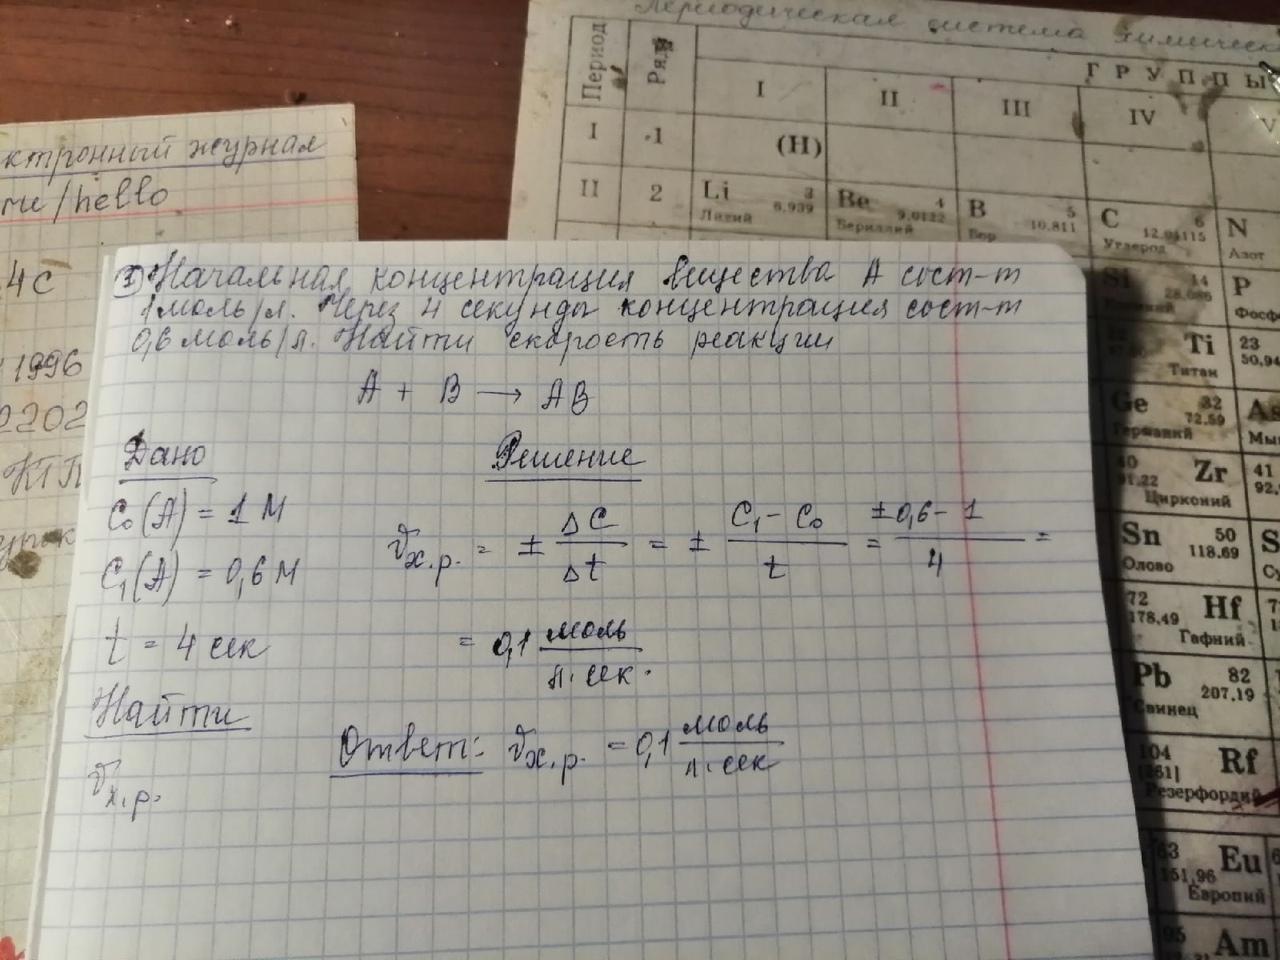 Периодическая система химическ
Период
Ряд
ГРУППЫ
I
II
III
IV
V
I
1
(H)
II
2
Li 3
6,939
Литий
Be 4
9,0122
Бериллий
B 5
10,811
Бор
C 6
12,01115
Углерод
N
Азот
Si 14
28,086
P
Фосф
Ti
Титан
23
50,94
Ge 32
72,59
Германий
As
Мы
40
91,22
Zr
Цирконий
41
92,
Sn 50
118.69
Олово
S
Су
72
178,49
Hf
Гафний
Pb 82
207,19
Свинец
104
[261]
Rf
Резерфордий
63
151,96
Eu
Европий
95
Am
ктронный журнал
me/hello
4с
1996
2202
КТП
урок
1) Начальная концентрация вещества А сост-т
1 моль/л. Через 4 секунды концентрация сост-т
0,6 моль/л. Найти скорость реакции
A + B → AB
Дано
Решение
C₀(A) = 1 М
C₁(A) = 0,6 М
t = 4 сек
Найти
Vх.р.
Vх.р. = ± ΔC/Δt = ± C₁ - C₀/t = ±0,6 - 1/4 =
= 0,1 моль/л.сек.
Ответ: Vх.р. = 0,1 моль/л.сек